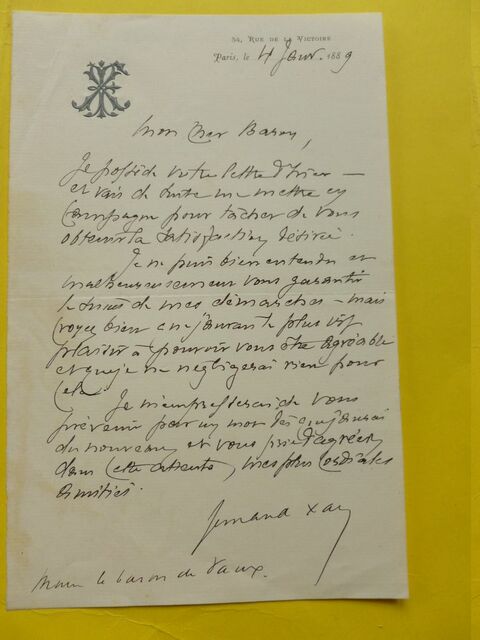 34, RUE DE LA VICTOIRE
Paris, le 4 Janv. 1889
Mon cher Baron,
Je possède votre lettre d'hier —
et vais de suite me mettre en
campagne pour tâcher de vous
obtenir la satisfaction désirée.
Je ne puis bien entendu et
malheureusement vous garantir
le succès de mes démarches — mais
croyez bien que j'aurai le plus vif
plaisir à pouvoir vous être agréable
et que je ne négligerai rien pour
cela.
Je m'empresserai de vous
prévenir par un mot dès que j'aurai
du nouveau et vous prie d'agréer,
dans cette attente, mes plus cordiales
amitiés.
Fernand Xau
le baron de Vaux.